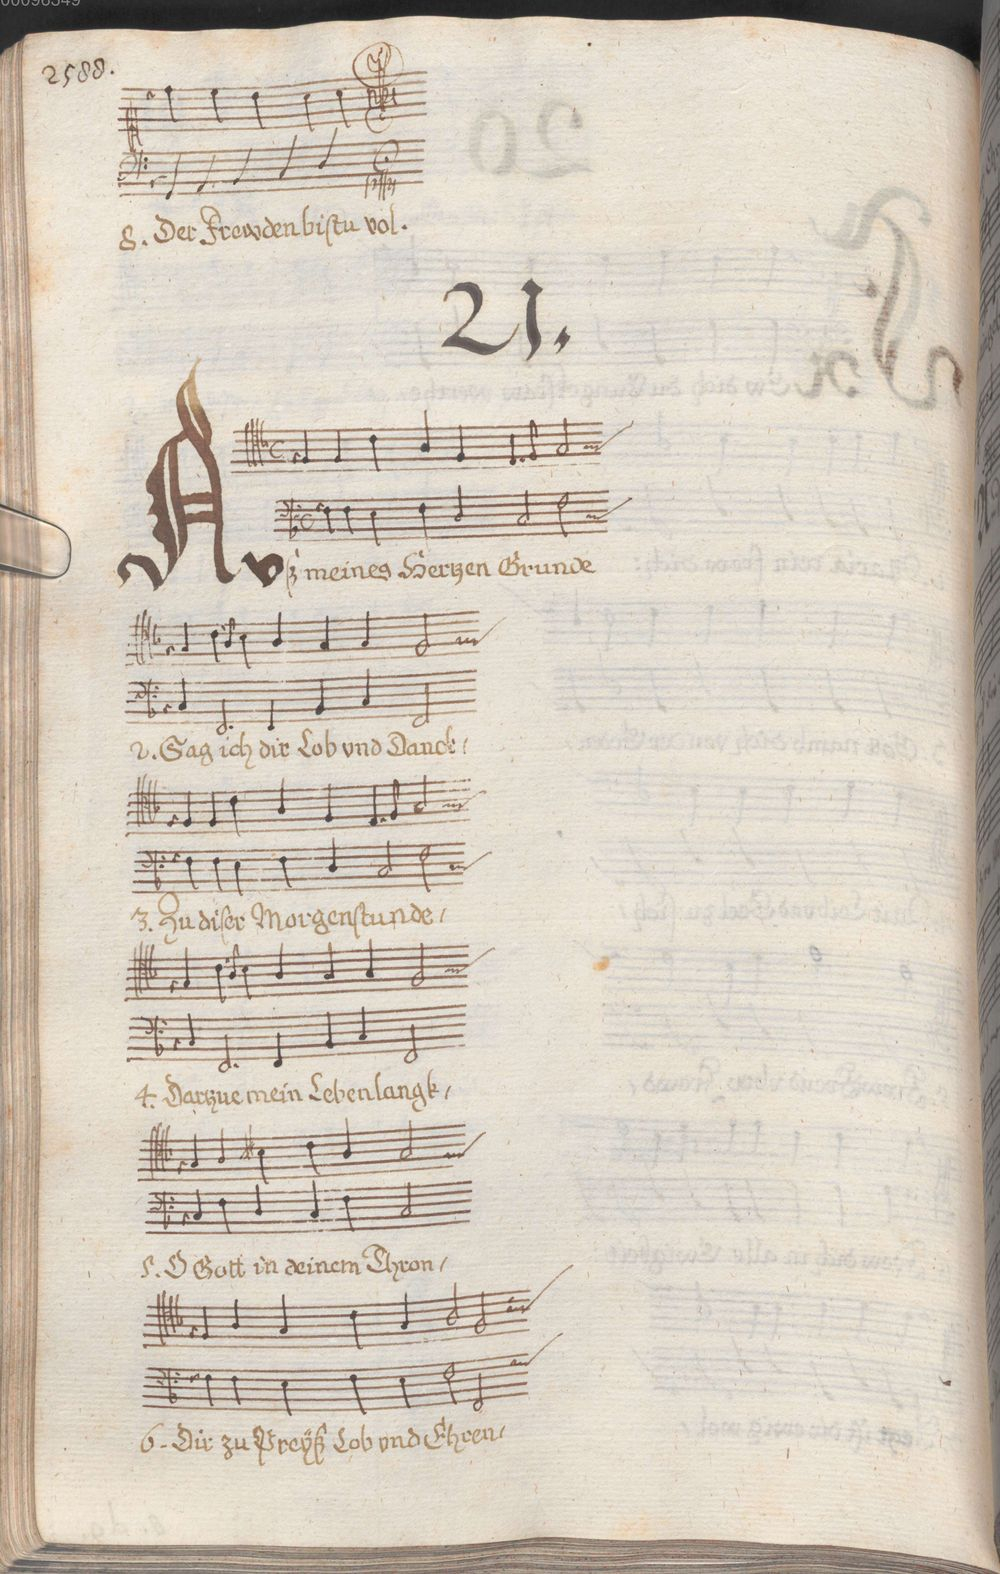 00098349
2588.
8. Der Frewden bistu vol.
21.
Avß meines Hertzen Grunde
2. Sag ich dir Lob vnd Danck /
3. Zu diser Morgenstunde /
4. Dartzue mein Lebenlangk /
5. O Gott in deinem Thron /
6. Dir zu Preÿß Lob vnd Ehren /